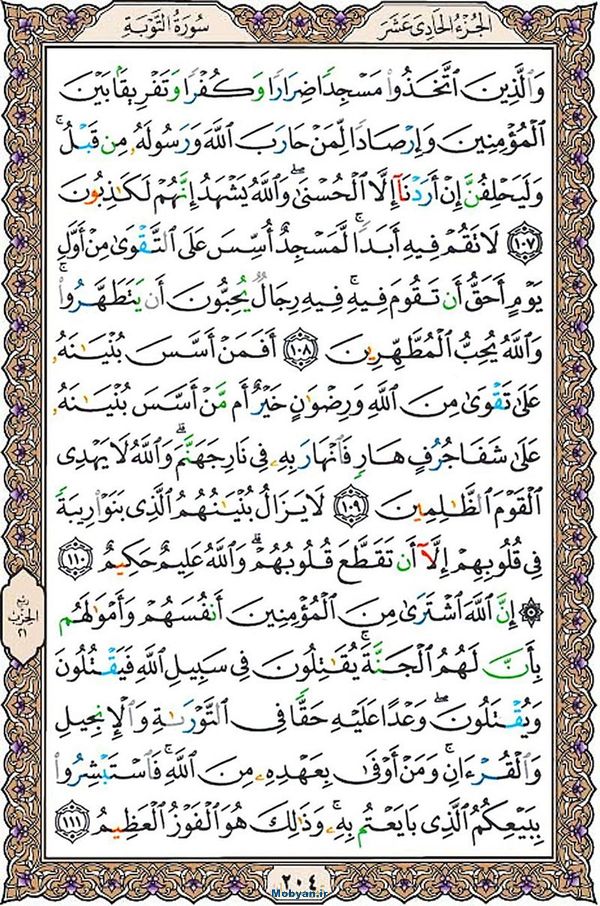 الجُزْءُ الحَادِي عَشَرَ
سُورَةُ التَّوْبَةِ
وَٱلَّذِينَ ٱتَّخَذُوا۟ مَسْجِدًا ضِرَارًا وَكُفْرًا وَتَفْرِيقًۢا بَيْنَ
ٱلْمُؤْمِنِينَ وَإِرْصَادًا لِّمَنْ حَارَبَ ٱللَّهَ وَرَسُولَهُۥ مِن قَبْلُ ۚ
وَلَيَحْلِفُنَّ إِنْ أَرَدْنَآ إِلَّا ٱلْحُسْنَىٰ ۖ وَٱللَّهُ يَشْهَدُ إِنَّهُمْ لَكَـٰذِبُونَ
۝١٠٧ لَا تَقُمْ فِيهِ أَبَدًا ۚ لَّمَسْجِدٌ أُسِّسَ عَلَى ٱلتَّقْوَىٰ مِنْ أَوَّلِ
يَوْمٍ أَحَقُّ أَن تَقُومَ فِيهِ ۚ فِيهِ رِجَالٌ يُحِبُّونَ أَن يَتَطَهَّرُوا۟ ۚ
وَٱللَّهُ يُحِبُّ ٱلْمُطَّهِّرِينَ ۝١٠٨ أَفَمَنْ أَسَّسَ بُنْيَـٰنَهُۥ
عَلَىٰ تَقْوَىٰ مِنَ ٱللَّهِ وَرِضْوَٰنٍ خَيْرٌ أَم مَّنْ أَسَّسَ بُنْيَـٰنَهُۥ
عَلَىٰ شَفَا جُرُفٍ هَارٍ فَٱنْهَارَ بِهِۦ فِى نَارِ جَهَنَّمَ ۗ وَٱللَّهُ لَا يَهْدِى
ٱلْقَوْمَ ٱلظَّـٰلِمِينَ ۝١٠٩ لَا يَزَالُ بُنْيَـٰنُهُمُ ٱلَّذِى بَنَوْا۟ رِيبَةً
فِى قُلُوبِهِمْ إِلَّآ أَن تَقَطَّعَ قُلُوبُهُمْ ۗ وَٱللَّهُ عَلِيمٌ حَكِيمٌ ۝١١٠
۞ إِنَّ ٱللَّهَ ٱشْتَرَىٰ مِنَ ٱلْمُؤْمِنِينَ أَنفُسَهُمْ وَأَمْوَٰلَهُم
بِأَنَّ لَهُمُ ٱلْجَنَّةَ ۚ يُقَـٰتِلُونَ فِى سَبِيلِ ٱللَّهِ فَيَقْتُلُونَ
وَيُقْتَلُونَ ۖ وَعْدًا عَلَيْهِ حَقًّا فِى ٱلتَّوْرَىٰةِ وَٱلْإِنجِيلِ
وَٱلْقُرْءَانِ ۚ وَمَنْ أَوْفَىٰ بِعَهْدِهِۦ مِنَ ٱللَّهِ ۚ فَٱسْتَبْشِرُوا۟
بِبَيْعِكُمُ ٱلَّذِى بَايَعْتُم بِهِۦ ۚ وَذَٰلِكَ هُوَ ٱلْفَوْزُ ٱلْعَظِيمُ ۝١١١
ربع
الحزب
٢١
٢٠٤
Mobyan.ir